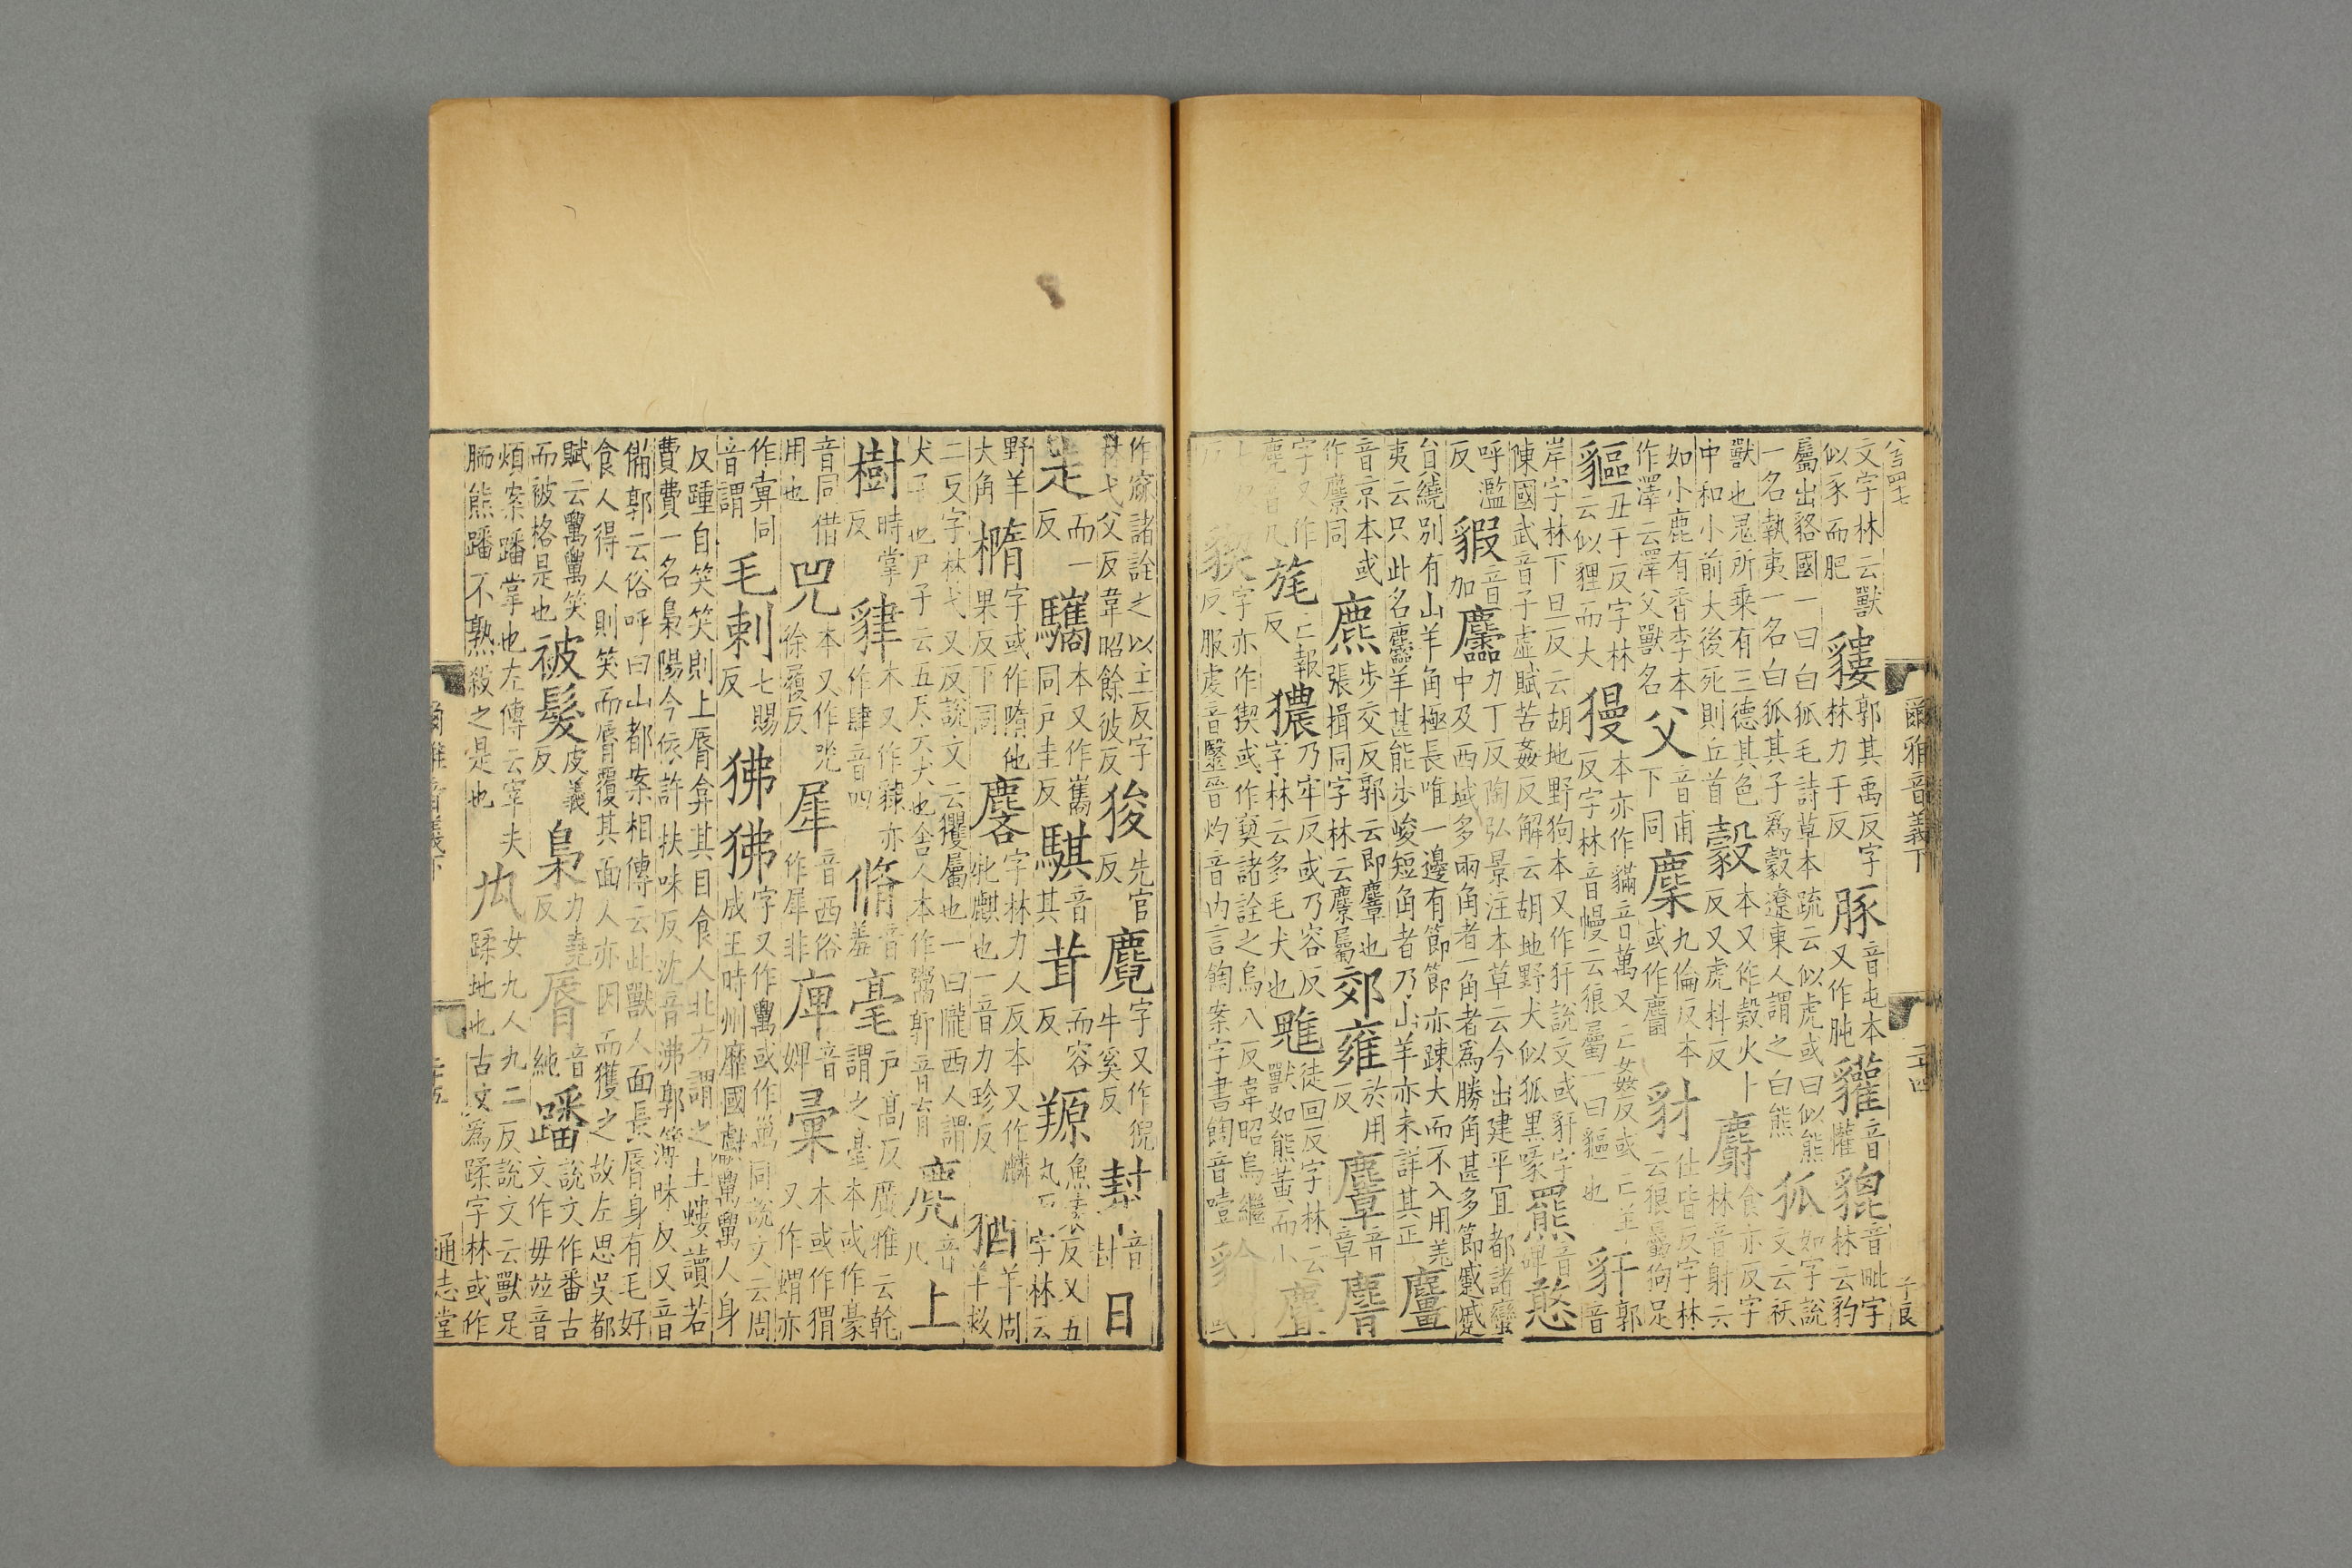 八百四十七 爾雅音義下 二十四 子良
文字林云獸似豕而肥貗郭其禹反字林力于反豚音屯本又作肫貛音懽貔音毗字林云豹
屬出貉國一曰白狐毛詩草本疏云似虎或曰似熊一名執夷一名白狐其子爲豰遼東人謂之白熊狐如字說文云䄏
獸也鬼所乗有三德其色中和小前大後死則丘首豰本又作㲉火卜反又虎料反麝食亦反字林音射云
如小鹿有香李本作澤云澤父獸名父音甫下同麇九倫反本或作麕豺仕皆反字林云狼屬狗足
貙丑于反字林云似狸而大獌本亦作貓音萬又亡姦反或亡半反字林音幔云狼屬一曰貙也豻郭音
岸字林下旦反云胡地野狗本又作犴說文或豻字陳國武音子虛賦苦姦反解云胡地野犬似狐黒喙羆音碑憨
呼濫反豭音加麢力丁反陶弘景注本草云今出建平宜都諸蠻中及西域多兩角者一角者爲勝角甚多節蹙蹙
自繞別有山羊角極長唯一邊有節節亦踈大而不入用羌夷云只此名麢羊甚能步峻短角者乃山羊亦未詳其正麠
音京本或作麖同麃步交反郭云即麞也張揖同字林云麇屬郊雍於用反麞音章
字又作旄亡報反㺜乃牢反或乃容反字林云多毛犬也魋徒回反字林云獸如熊黃而小
字亦作猰或作㺊諸詮之烏八反韋昭烏繼反服虔音毉晉灼音內言䬁案字書䬁音噎貐字或
作窳諸詮之以主反字弋父反韋昭餘彼反狻先官反麑字又作猊牛奚反犎音封日
走而一反驨本又作巂同戶圭反騏音其茸而容反羱魚袁反又五丸反字林云
野羊大角橢字或作隋他果反下同麐字林力人反本又作麟牝麒也一音力珍反猶羊周羊救
二反字林弋又反說文云玃屬也一曰隴西人謂犬子也尸子云五尺大犬也舍人本作鬻䣄音育麂音几上
樹時掌反貄本又作肄亦作肆音四脩音羞毫戶高反廣雅云乾謂之毫本或作豪
音同借用也兕本又作兕徐履反犀音西俗作犀非庳音婢彙本或作猬又作蝟亦
作彚同音謂毛刺七賜反狒狒字又作𥝋或作萬同說文云周成王時州靡國獻𥝋人身
反踵自笑笑則上脣弇其目食人北方謂之土螻讀若費費一名梟陽今依許扶味反沈音沸郭簿昧反又音
備郭云俗呼曰山都案相傳云此獸人面長脣身有毛好食人得人則笑而脣覆其面人亦因而獲之故左思吳都
賦云𥝋𥝋笑而被格是也被髮皮義反梟力堯反脣音純蹯說文作番古文作毋竝音
煩案蹯掌也左傳云宰夫胹熊蹯不熟殺之是也厹女九人九二反說文云獸足蹂地也古文爲蹂字林或作
爾雅音義下 二十五 通志堂